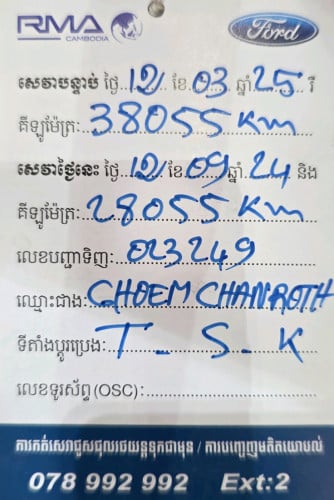 RMA
CAMBODIA
Ford
សេវាបន្ទាប់ ថ្ងៃ 12 ខែ 03 ឆ្នាំ 25 រឺ
គីឡូម៉ែត្រ: 38055 Km
សេវាថ្ងៃនេះ ថ្ងៃ 12 ខែ 09 ឆ្នាំ 24 និង
គីឡូម៉ែត្រ: 28055 Km
លេខបញ្ជាទិញ: 023249
ឈ្មោះជាង: CHOEM CHANROTH
ទីតាំងប្តូរប្រេង: T - S - K
លេខទូរស័ព្ទ (OSC):
ការកត់សេវាជួសជុលរថយន្តទុកជាមុន / ការបញ្ចេញមតិយោបល់
078 992 992 Ext:2